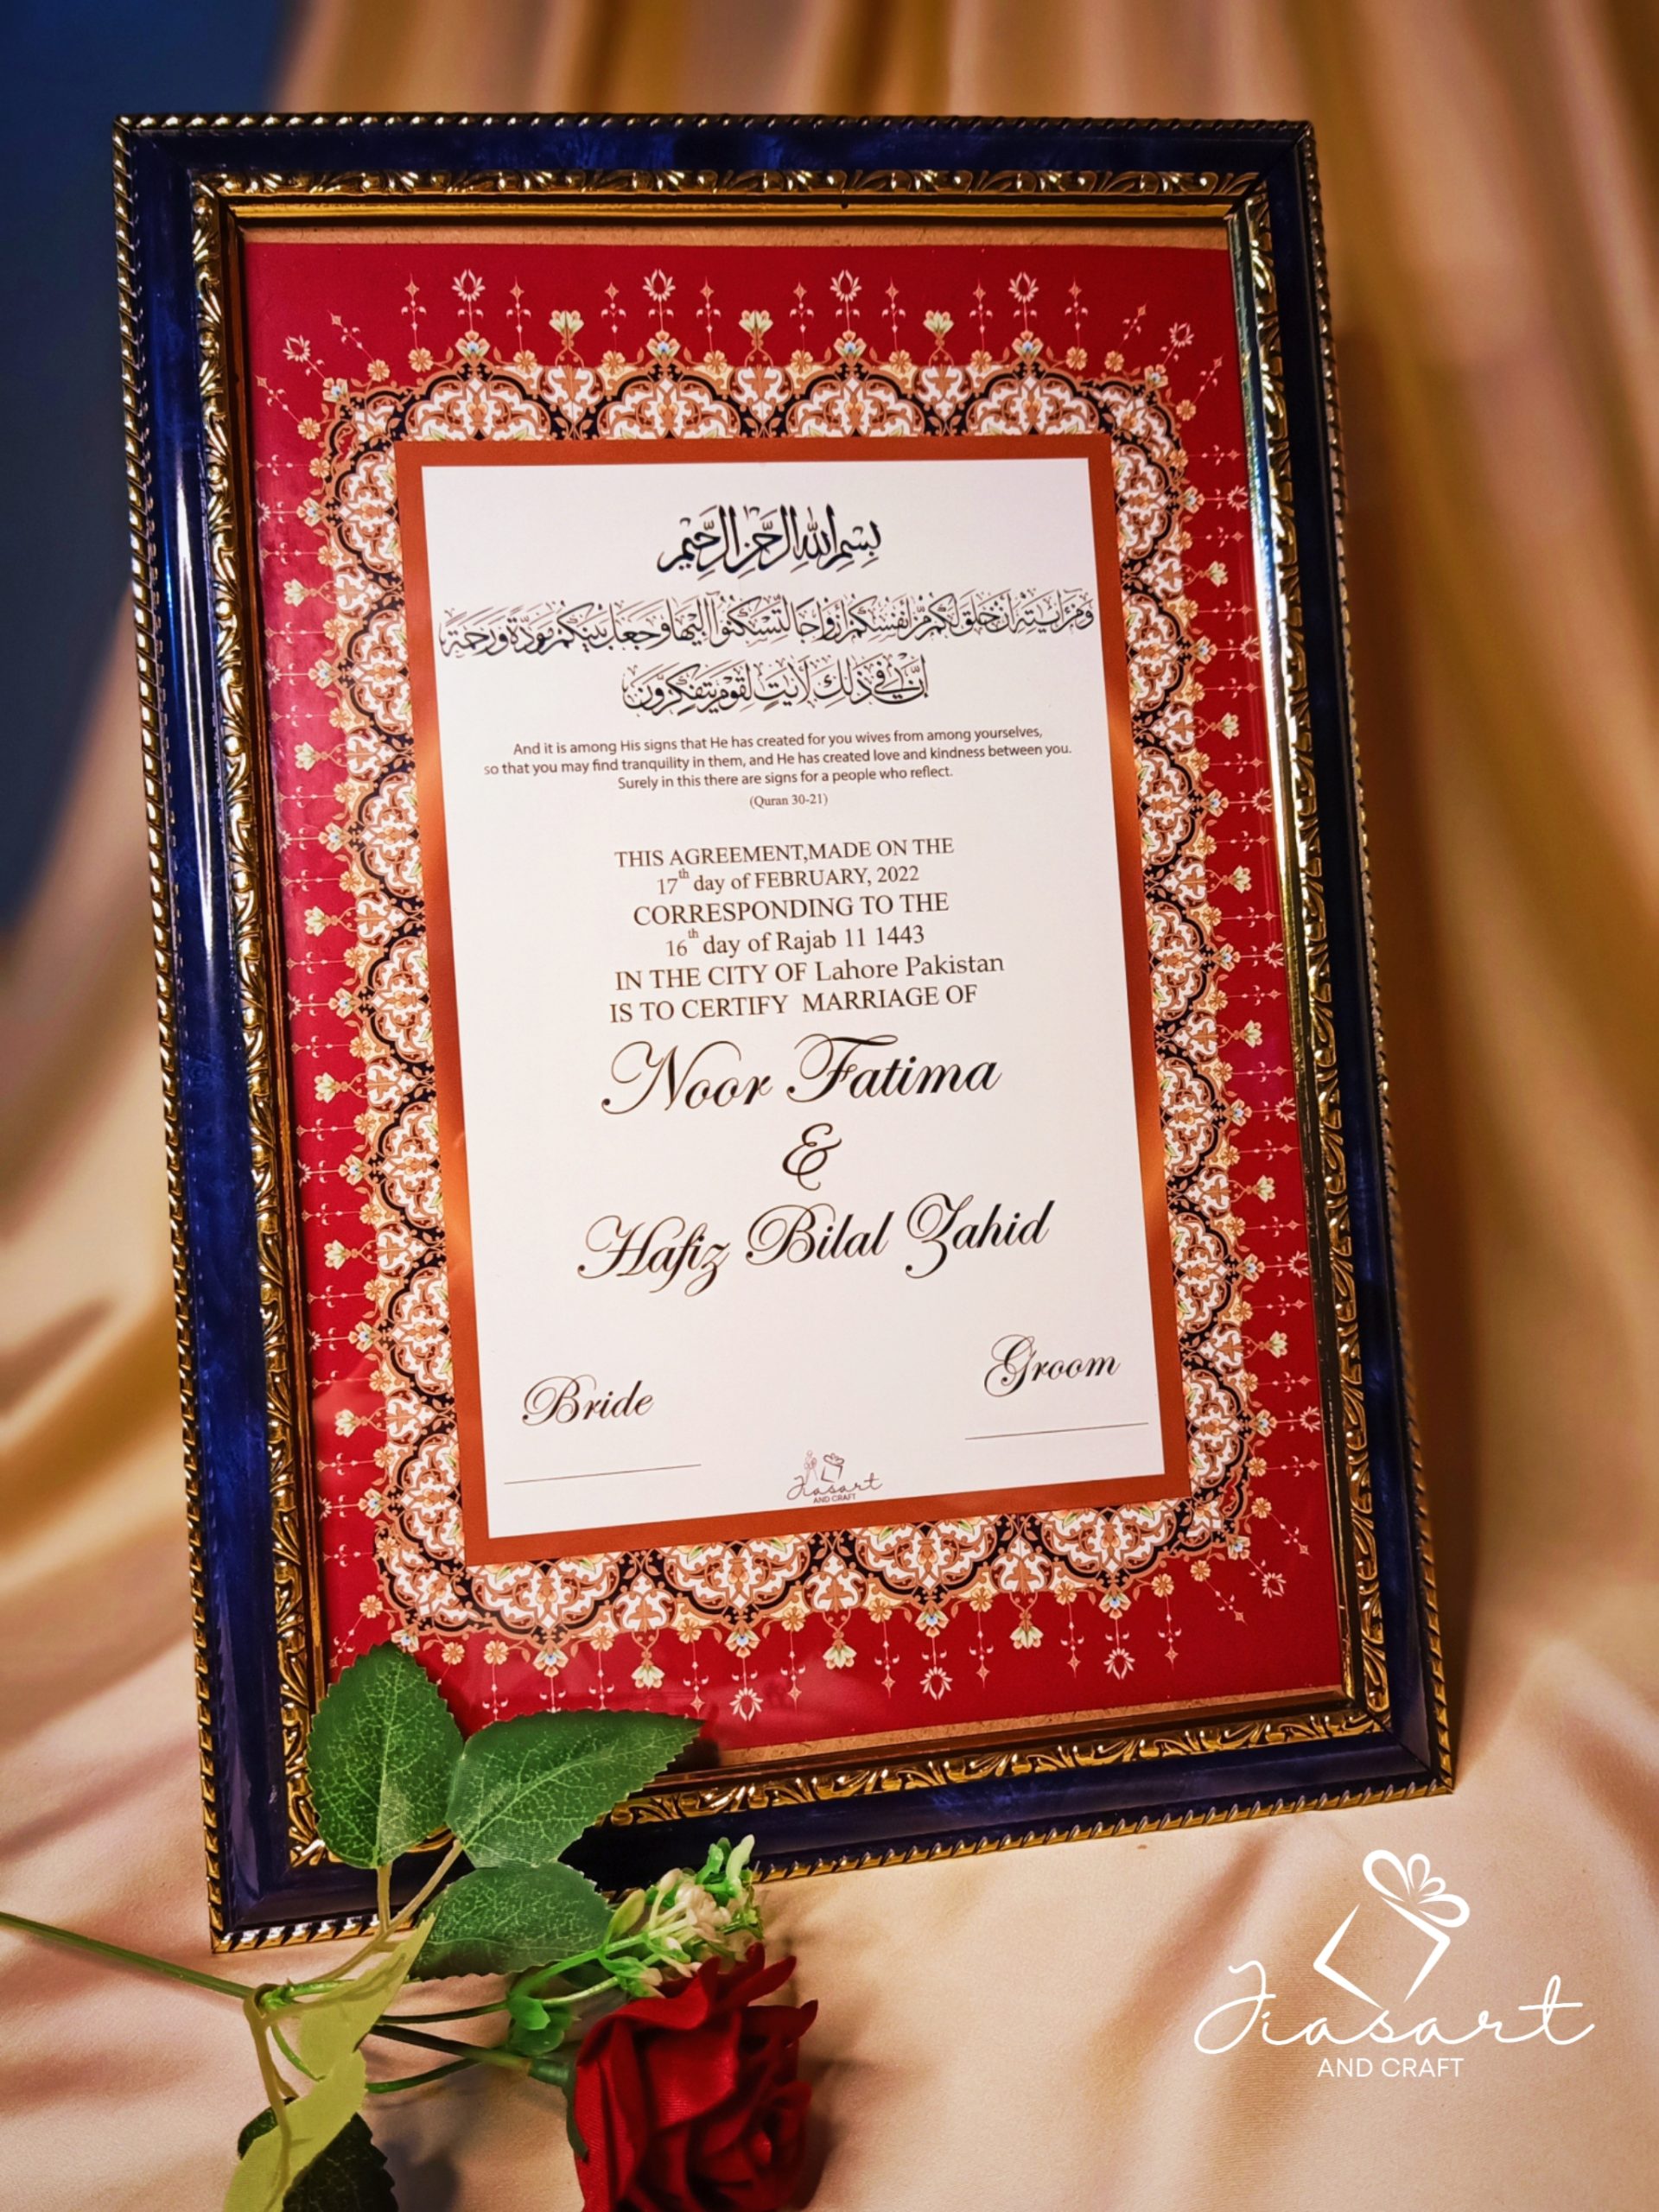 بِسْمِ اللهِ الرَّحْمٰنِ الرَّحِيْمِ
وَمِنْ ءَايَـٰتِهِۦٓ أَنْ خَلَقَ لَكُم مِّنْ أَنفُسِكُمْ أَزْوَٰجًا لِّتَسْكُنُوٓا۟ إِلَيْهَا وَجَعَلَ بَيْنَكُم مَّوَدَّةً وَرَحْمَةً
إِنَّ فِى ذَٰلِكَ لَـَٔايَـٰتٍ لِّقَوْمٍ يَتَفَكَّرُونَ
And it is among His signs that He has created for you wives from among yourselves,
so that you may find tranquility in them, and He has created love and kindness between you.
Surely in this there are signs for a people who reflect.
(Quran 30-21)
THIS AGREEMENT,MADE ON THE
17th day of FEBRUARY, 2022
CORRESPONDING TO THE
16th day of Rajab 11 1443
IN THE CITY OF Lahore Pakistan
IS TO CERTIFY MARRIAGE OF
Noor Fatima
&
Hafiz Bilal Zahid
Bride
Groom
Jiasart
AND CRAFT
Jiasart
AND CRAFT